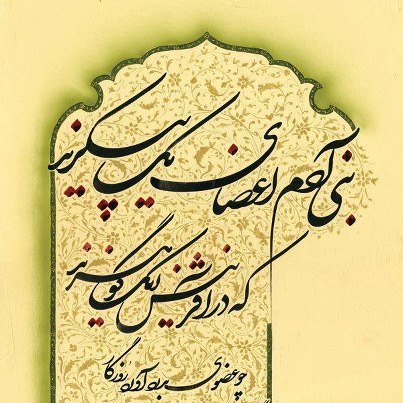 بنی آدم اعضای یک پیکرند
که در آفرینش ز یک گوهرند
چو عضوی بدرد آورد روزگار